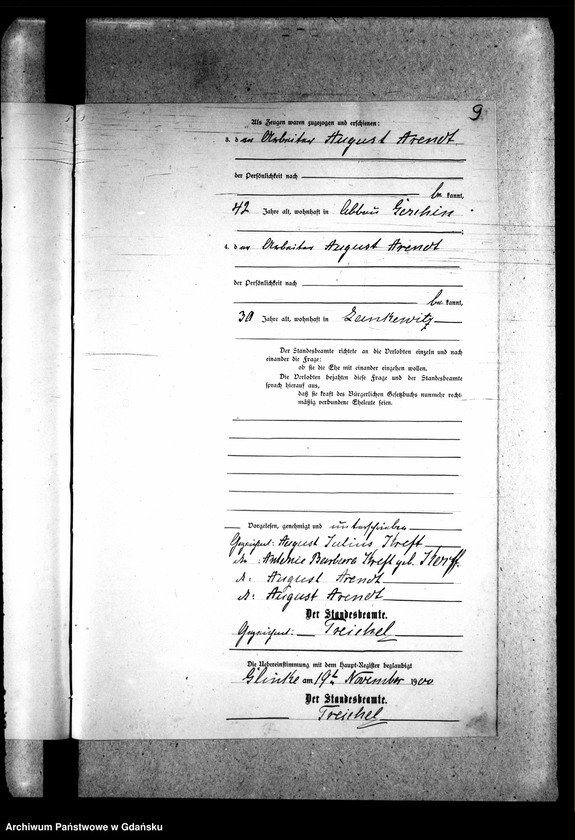 9
Als Zeugen waren zugezogen und erschienen:
3. der Arbeiter August Arendt
der Persönlichkeit nach
be kannt,
42 Jahre alt, wohnhaft in Abbau Gerchin
4. der Arbeiter August Arendt
der Persönlichkeit nach
be kannt,
30 Jahre alt, wohnhaft in Zankewitz
Der Standesbeamte richtete an die Verlobten einzeln und nach
einander die Frage:
ob sie die Ehe mit einander eingehen wollen.
Die Verlobten bejahten diese Frage und der Standesbeamte
sprach hierauf aus,
daß sie kraft des Bürgerlichen Gesetzbuchs nunmehr recht-
mäßig verbundene Eheleute seien.
Vorgelesen, genehmigt und unterschrieben
Gezeichnet: August Julius Kreft
Antonie Barbara Kreft geb.
August Arendt
August Arendt
Der Standesbeamte.
Gezeichnet: Treichel
Die Uebereinstimmung mit dem Haupt-Register beglaubigt
Glinke am 19t November 1900
Der Standesbeamte.
Treichel
Archiwum Państwowe w Gdańsku